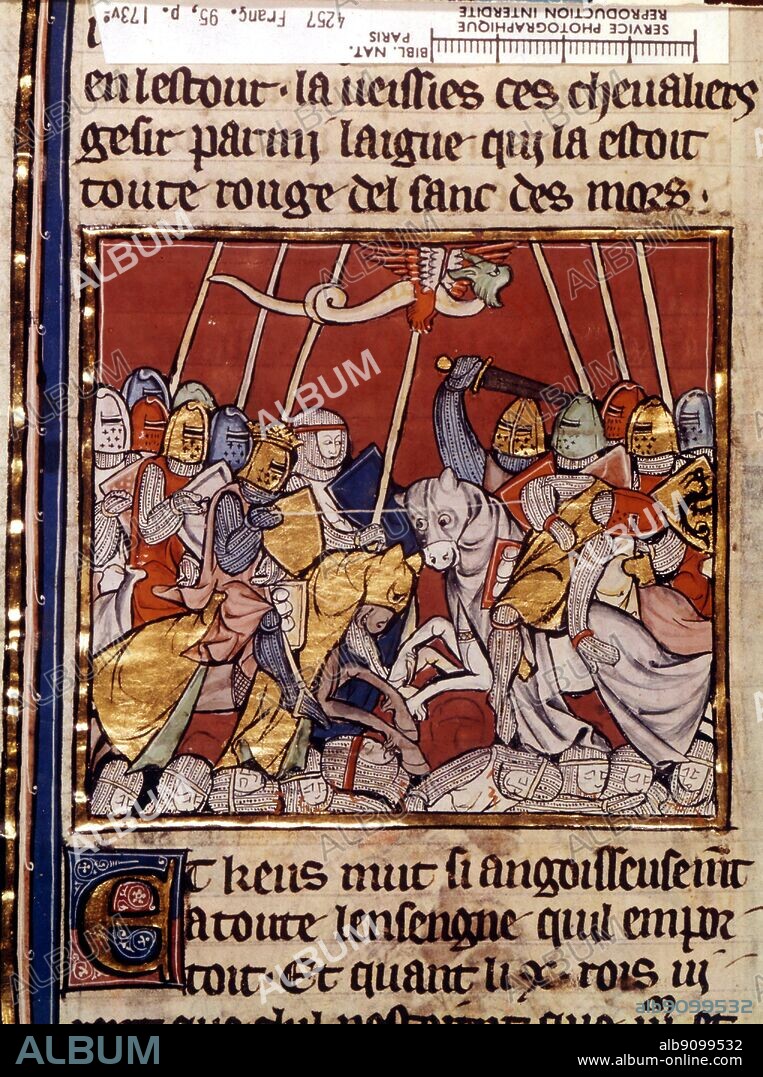 4257 Franç. 95, p. 173vº
BIBL. NAT. PARIS
SERVICE PHOTOGRAPHIQUE
REPRODUCTION INTERDITE
en lestour · la ueissies ces cheualiers
gesir parmi laigue qui la estoit
toute rouge del sanc des mors ·
Et keus mut si angoisseusemt
a toute lensengne quil empor
toit Et quant li x · rois
ALBUM
ab9099532
ALBUM
alb9099532
www.album-online.com